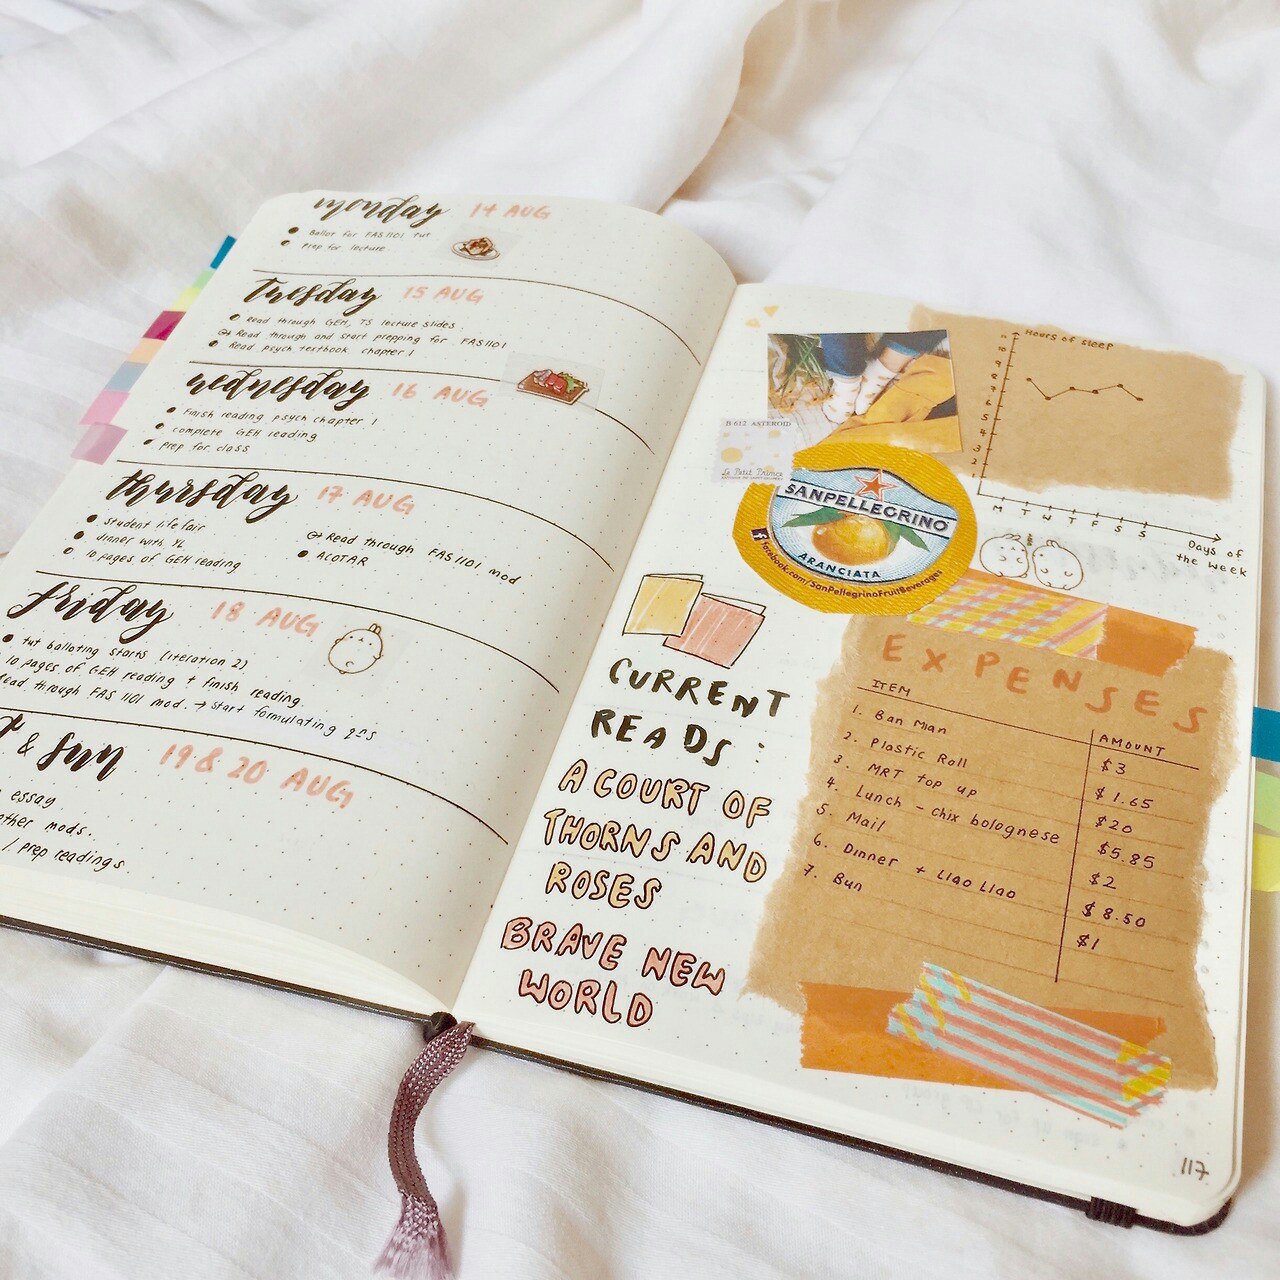 monday 14 AUG
Ballot for FAS1101 tut
Prep for lecture
tuesday 15 AUG
Read through GEH, TS lecture slides
Read through and start prepping for FAS1101
Read psych textbook chapter 1
wednesday 16 AUG
Finish reading psych chapter 1
complete GEH reading
prep for class
thursday 17 AUG
student life fair
dinner with YL
10 pages of GEH reading
Read through FAS1101 mod
ACOTAR
friday 18 AUG
tut balloting starts (iteration 2)
10 pages of GEH reading + finish reading
Read through FAS 1101 mod. → start formulating
& sun 19 & 20 AUG
essay
other mods.
/ prep readings
Hours of sleep
M T W T F S S
Days of
the week
B-612 ASTEROID
Le Petit Prince
SANPELLEGRINO
ARANCIATA
facebook.com/SanPellegrinoFruitBeverages
CURRENT
READS:
A COURT OF
THORNS AND
ROSES
BRAVE NEW
WORLD
EXPENSES
ITEM AMOUNT
1. Ban Mian $3
2. Plastic Roll $1.65
3. MRT top up $20
4. Lunch - chix bolognese $5.85
5. Mail $2
6. Dinner + Llao Llao $8.50
7. Bun $1
117